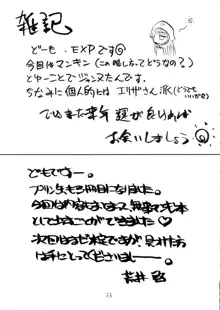 雑記
どーも、EXPです
今回はマンキン(この略しかたってどうなの?)
とゆーことでジャンヌたんです。
ちなみに個人的にはエリザさん派(どうでもいいがな)
でわまた来年運が良ければ
お会いしましょう
どもですー。
プリン矢も3冊目になりました。
今回は
として出すことができました
次回は未定ですが、見かけた時
は手にとってくださいましー。
荒井
23